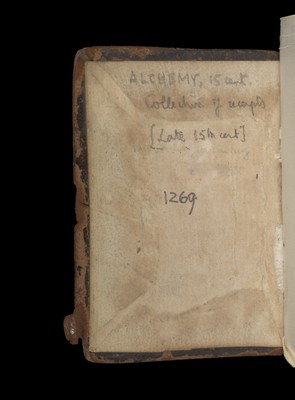 ALCHEMY, 15 cent.
Collection of receipts
[Late 15th cent]
1269